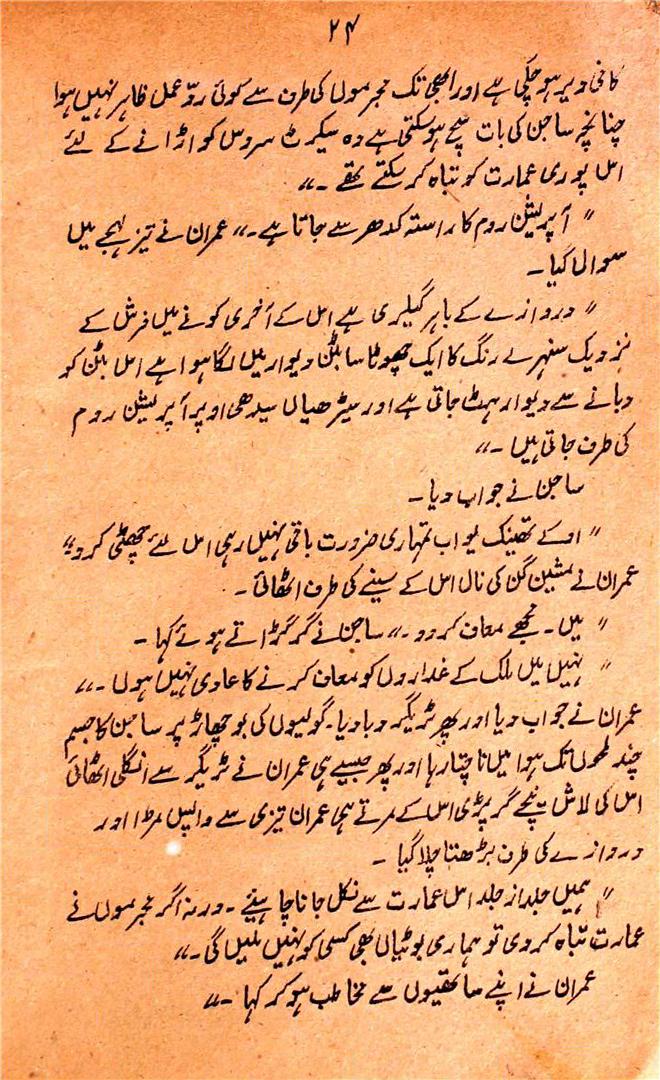 ۲۴
کافی دیر ہو چکی ہے اور ابھی تک میجر مولا کی طرف سے کوئی ردِّ عمل ظاہر نہیں ہوا
چنانچہ ساجن کی بات سچ ہو سکتی ہے وہ سیکرٹ سروس کو اڑانے کے لئے
اس پوری عمارت کو تباہ کر سکتے تھے ۔“
” آپریشن روم کا راستہ کدھر سے جاتا ہے ۔“ عمران نے تیز لہجے میں
سوال کیا ۔
” دروازے کے باہر گیلری ہے اس کے آخری کونے میں فرش کے
نزدیک سنہرے رنگ کا ایک چھوٹا سا بٹن دیوار میں لگا ہوا ہے اس بٹن کو
دبانے سے دیوار ہٹ جاتی ہے اور سیڑھیاں سیدھی اوپر آپریشن روم
کی طرف جاتی ہیں ۔“
ساجن نے جواب دیا ۔
” اوکے تھینک یو اب تمہاری ضرورت باقی نہیں رہی اس لئے چھٹی کرو “
عمران نے مشین گن کی نال اس کے سینے کی طرف اٹھائی ۔
” میں ۔ مجھے معاف کر دو ۔“ ساجن نے گڑگڑاتے ہوئے کہا ۔
” نہیں میں ملک کے غداروں کو معاف کرنے کا عادی نہیں ہوں ۔“
عمران نے جواب دیا اور پھر ٹریگر دبا دیا ۔ گولیوں کی بوچھاڑ پر ساجن کا جسم
چند لمحوں تک ہوا میں ناچتا رہا اور پھر جیسے ہی عمران نے ٹریگر سے انگلی اٹھائی
اس کی لاش نیچے گر پڑی اس کے مرتے ہی عمران تیزی سے واپس مڑا اور
دروازے کی طرف بڑھتا چلا گیا ۔
” ہمیں جلد از جلد اس عمارت سے نکل جانا چاہیئے ۔ ورنہ اگر میجر مولا نے
عمارت تباہ کر دی تو ہماری بوٹیاں بھی کسی کو نہیں ملیں گی ۔“
عمران نے اپنے ساتھیوں سے مخاطب ہو کر کہا ۔“